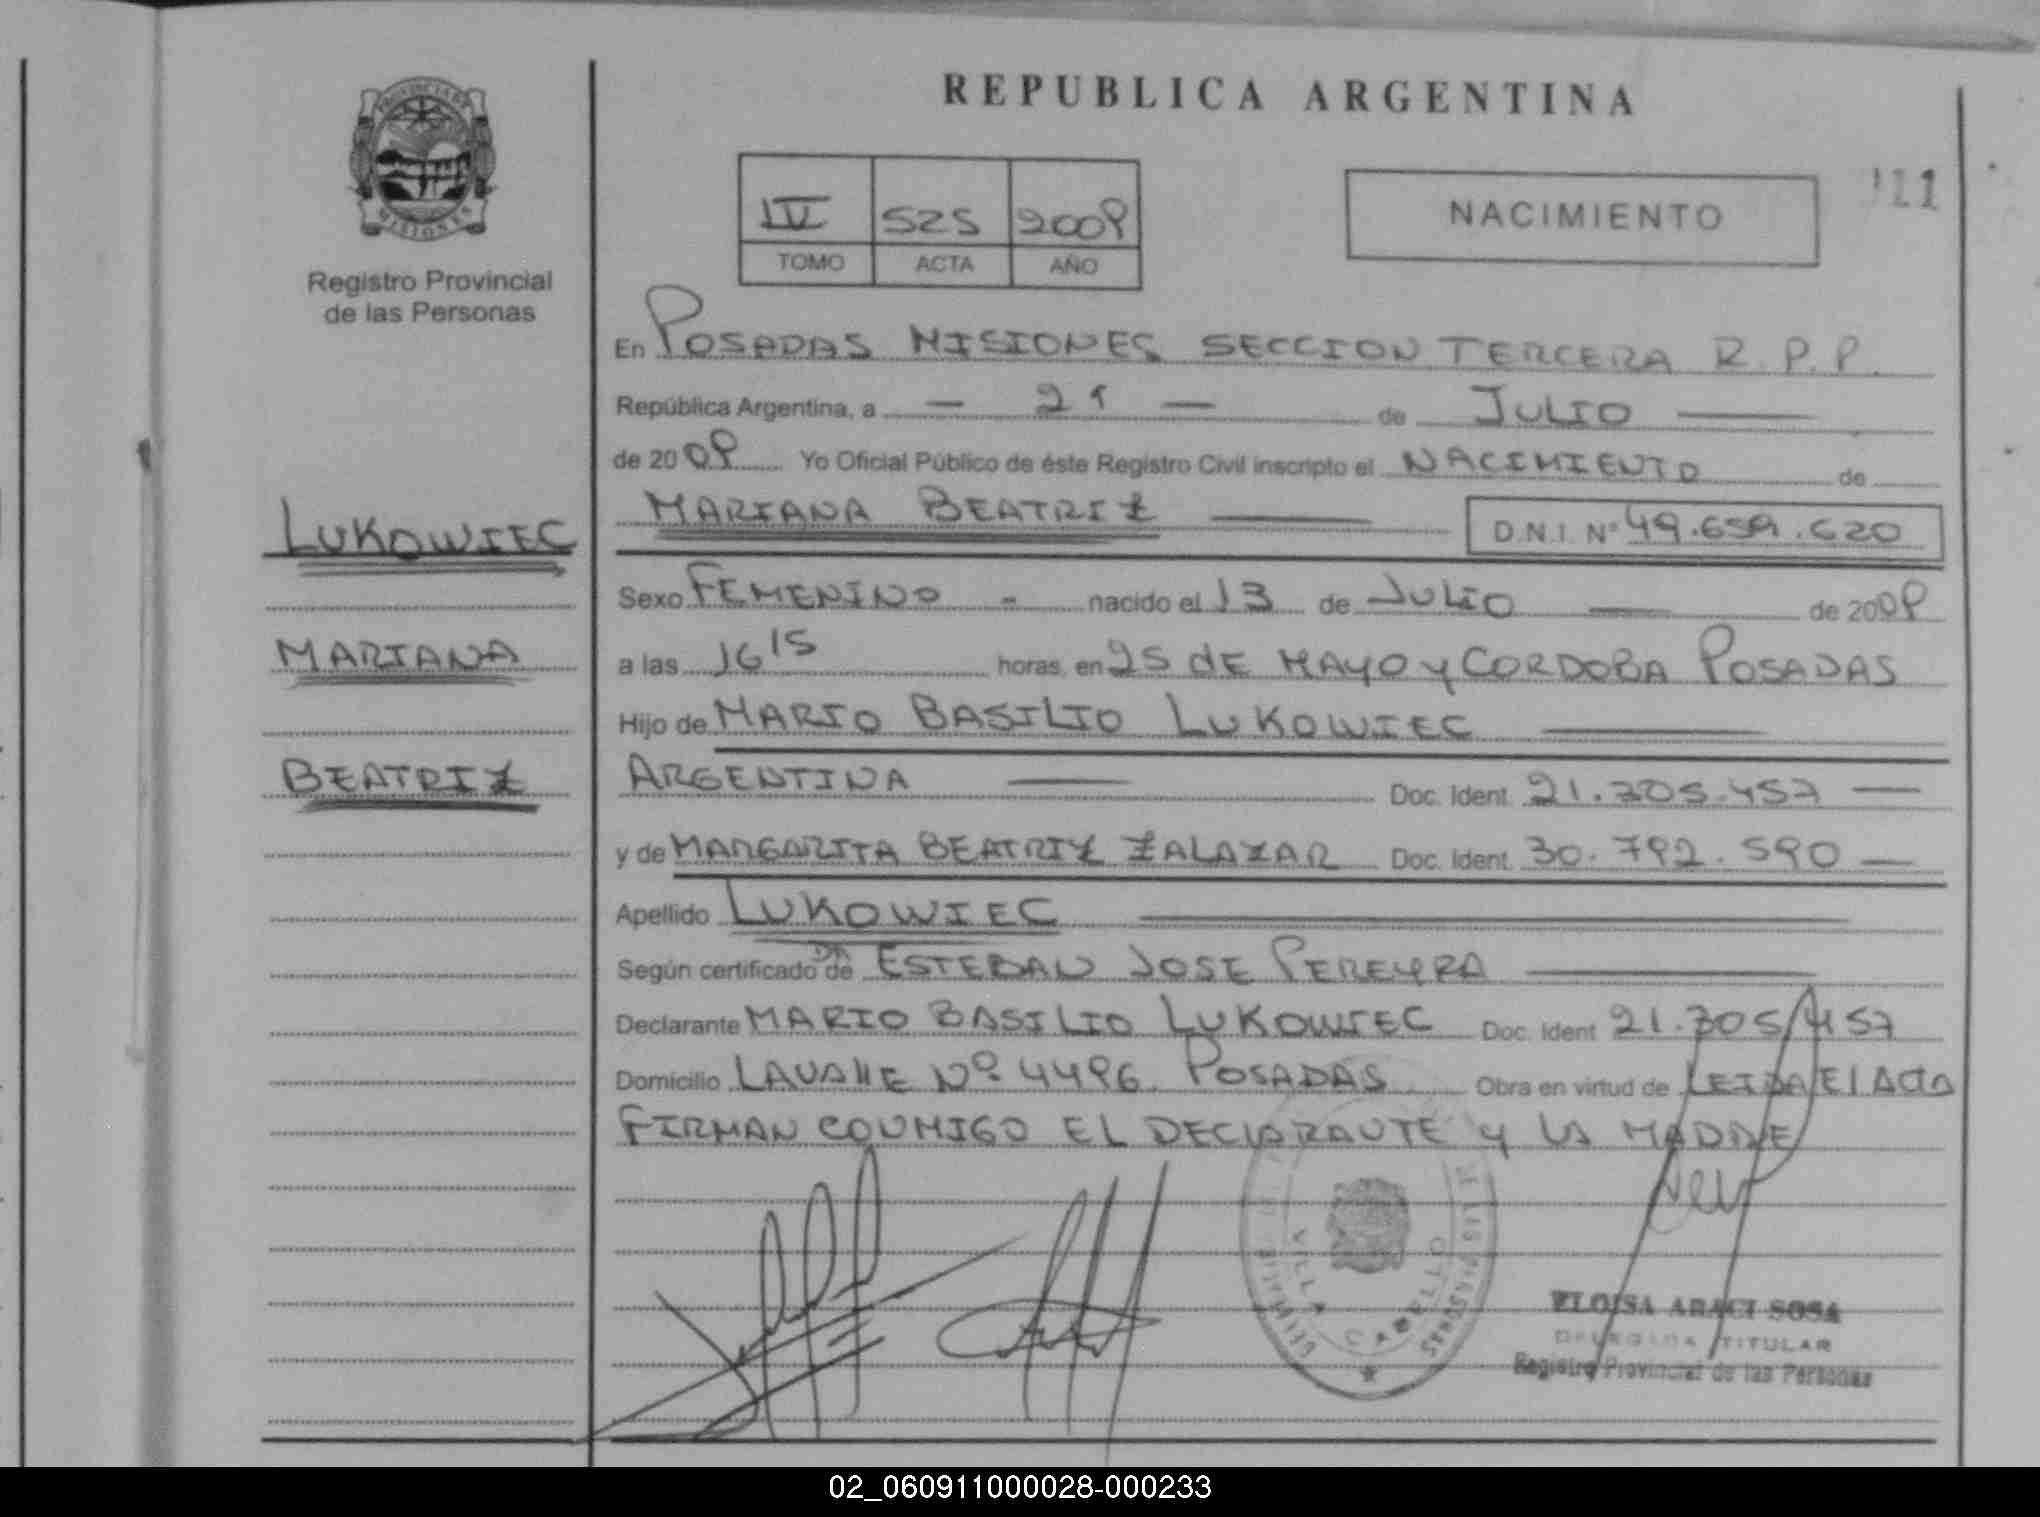 REPUBLICA ARGENTINA
PROVINCIA DE
MISIONES
Registro Provincial
de las Personas
IV 525 2009
TOMO ACTA AÑO
NACIMIENTO
111
En POSADAS MISIONES SECCION TERCERA R.P.P.
República Argentina, a — 21 — de JULIO
de 2009 Yo Oficial Público de éste Registro Civil inscripto el NACIMIENTO de
LUKOWIEC
MARIANA BEATRIZ D.N.I. Nº 49.659.620
Sexo FEMENINO - nacido el 13 de JULIO de 2009
MARIANA
a las 16 15 horas, en 25 dE MAYO y CORDOBA POSADAS
Hijo de MARIO BASILIO LUKOWIEC
BEATRIZ
ARGENTINA Doc. Ident. 21.305.457
y de MARGARITA BEATRIZ ZALAZAR Doc. Ident. 30.792.590
Apellido LUKOWIEC
Según certificado de DR ESTEBAN JOSE PEREYRA
Declarante MARIO BASILIO LUKOWIEC Doc. Ident. 21.305.457
Domicilio LAVAllE Nº 4496 POSADAS Obra en virtud de LEIDA El Acta
FIRMAN CONMIGO EL DECLARANTE y LA MADRE
VILLA CABELLO
DE LAS PERSONAS
ELOISA ARACI SOSA
DELEGADA TITULAR
Registro Provincial de las Personas
02_060911000028-000233